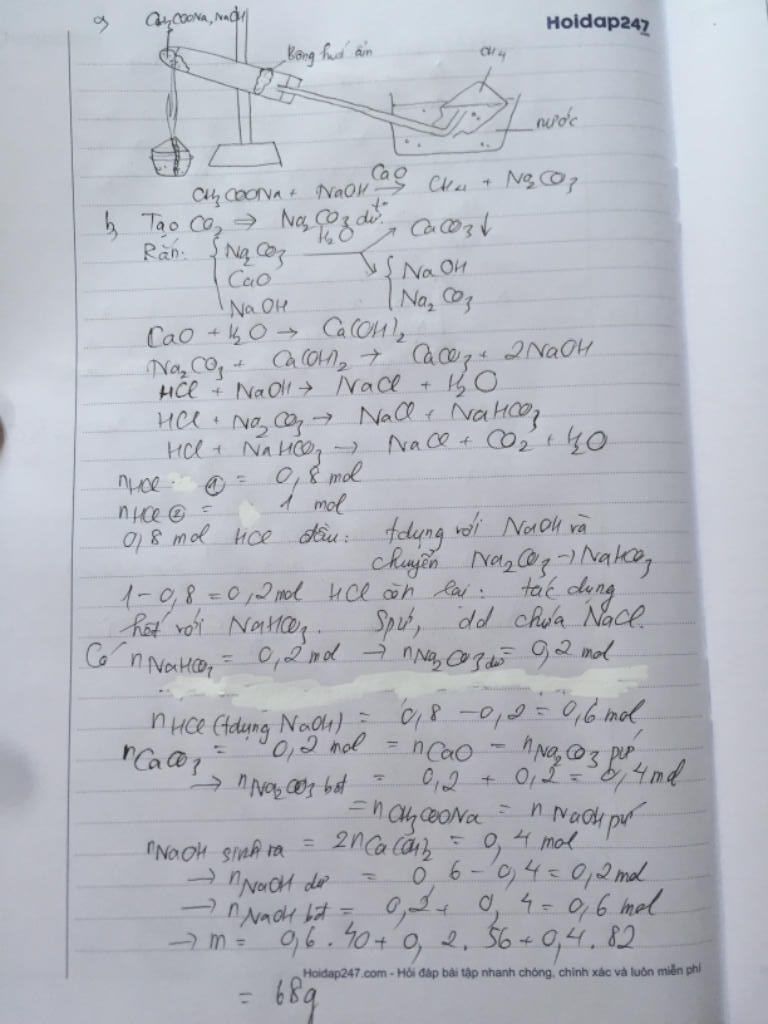 a,
CH3COONa, NaOH
Hoidap247
Bông hút ẩm
CH4
nước
CH3COONa + NaOH CaO → t° CH4 + Na2CO3
b, Tạo CO2 ⇒ Na2CO3 dư.
Rắn: { Na2CO3 H2O → CaCO3↓
CaO { NaOH
NaOH Na2CO3
CaO + H2O → Ca(OH)2
Na2CO3 + Ca(OH)2 → CaCO3 + 2NaOH
HCl + NaOH → NaCl + H2O
HCl + Na2CO3 → NaCl + NaHCO3
HCl + NaHCO3 → NaCl + CO2 + H2O
nHCl ① = 0,8 mol
nHCl ② = 1 mol
0,8 mol HCl đầu: tdụng với NaOH và
chuyển Na2CO3 → NaHCO3
1 - 0,8 = 0,2 mol HCl còn lại: tác dụng
hết với NaHCO3. Spứ, dd chứa NaCl.
Có nNaHCO3 = 0,2 mol → nNa2CO3 dư = 0,2 mol
nHCl (tdụng NaOH) = 0,8 - 0,2 = 0,6 mol
nCaCO3 = 0,2 mol = nCaO = nNa2CO3 pứ
→ nNa2CO3 bđ = 0,2 + 0,2 = 0,4 mol
= nCH3COONa = nNaOH pứ
nNaOH sinh ra = 2nCa(OH)2 = 0,4 mol
→ nNaOH dư = 0,6 - 0,4 = 0,2 mol
→ nNaOH bđ = 0,2 + 0,4 = 0,6 mol
→ m = 0,6.40 + 0,2.56 + 0,4.82
Hoidap247.com - Hỏi đáp bài tập nhanh chóng, chính xác và luôn miễn phí
= 68g